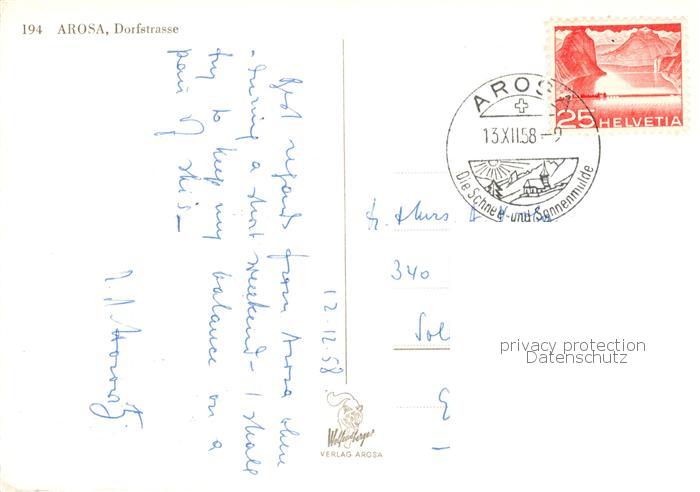 194 AROSA, Dorfstrasse
Best regards from Arosa where
during a short weekend - I shall
try to keep my balance on a
pair of skis -
12.12.58.
AROSA
13.XII.58-
Die Schnee-und Sonnenmulde
25 HELVETIA
340
Sol
privacy protection
Datenschutz
VERLAG AROSA